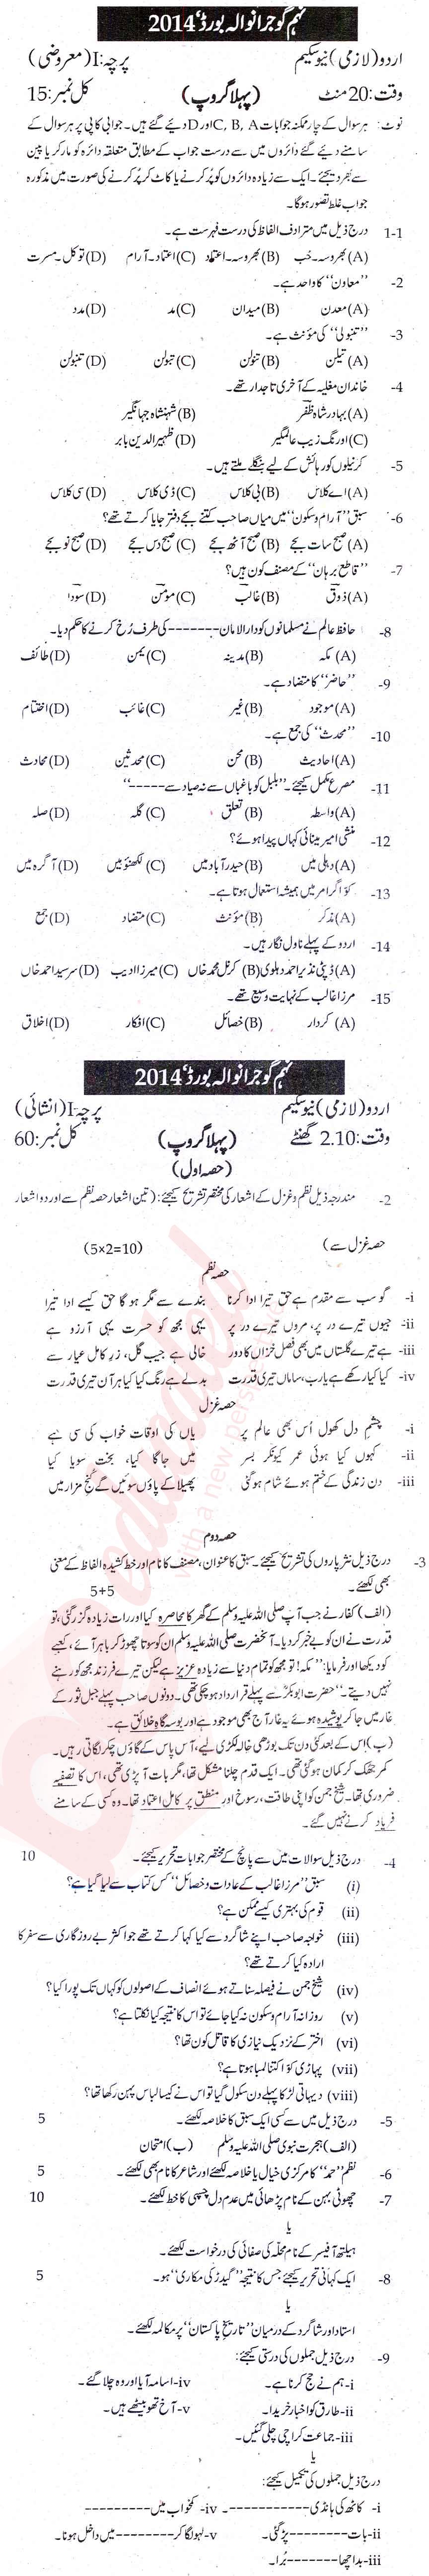 نہم گوجرانوالہ بورڈ' 2014
اردو (لازمی) نیوسکیم پرچہ: I (معروضی)
وقت: 20 منٹ (پہلا گروپ) کل نمبر: 15
نوٹ: ہر سوال کے چار ممکنہ جوابات C, B, A اور D دیے گئے ہیں۔ جوابی کاپی پر ہر سوال کے
سامنے دیئے گئے دائروں میں سے درست جواب کے مطابق متعلقہ دائرہ کو مارکر یا پین
سے بھر دیجئے۔ ایک سے زیادہ دائروں کو پُر کرنے یا کاٹ کر پُر کرنے کی صورت میں مذکورہ
جواب غلط تصور ہوگا۔
1-1 درج ذیل میں مترادف الفاظ کی درست فہرست ہے۔
(A) بھروسہ۔حُب (B) بھروسہ۔اعتماد (C) اعتماد۔آرام (D) توکل۔مسرت
-2 ''معاون'' کا واحد ہے۔
(A) معدن (B) میدان (C) مد (D) مدد
-3 ''تنبولی'' کی مؤنث ہے۔
(A) تیلن (B) تنولن (C) تبولن (D) تنبولن
-4 خاندان مغلیہ کے آخری تاجدار تھے۔
(A) بہادر شاہ ظفر (B) شہنشاہ جہانگیر
(C) اورنگ زیب عالمگیر (D) ظہیر الدین بابر
-5 کرنیلوں کو رہائش کے لیے بنگلے ملتے ہیں۔
(A) اے کلاس (B) بی کلاس (C) ڈی کلاس (D) سی کلاس
-6 سبق ''آرام و سکون'' میں میاں صاحب کتنے بجے دفتر جایا کرتے تھے؟
(A) صبح سات بجے (B) صبح آٹھ بجے (C) صبح دس بجے (D) صبح نو بجے
-7 ''قاطع برہان'' کے مصنف کون ہیں؟
(A) ذوق (B) غالب (C) مومن (D) سودا
-8 حافظ عالم نے مسلمانوں کو دارالامان ------- کی طرف رُخ کرنے کا حکم دیا۔
(A) مکہ (B) مدینہ (C) یمن (D) طائف
-9 ''حاضر'' کا متضاد ہے۔
(A) موجود (B) غیر (C) غائب (D) اختتام
-10 ''محدث'' کی جمع ہے۔
(A) احادیث (B) محن (C) محدثین (D) محادث
-11 مصرع مکمل کیجئے۔ ''بلبل کو باغباں سے نہ صیاد سے -----''
(A) واسطہ (B) تعلق (C) گلہ (D) صلہ
-12 منشی امیر مینائی کہاں پیدا ہوئے؟
(A) دہلی میں (B) حیدرآباد میں (C) لکھنؤ میں (D) آگرہ میں
-13 کوّا گرامر میں ہمیشہ استعمال ہوتا ہے۔
(A) مذکر (B) مؤنث (C) متضاد (D) جمع
-14 اردو کے پہلے ناول نگار ہیں۔
(A) ڈپٹی نذیر احمد دہلوی (B) کرنل محمد خاں (C) میرزا ادیب (D) سرسید احمد خاں
-15 مرزا غالب کے نہایت وسیع تھے۔
(A) کردار (B) خصائل (C) افکار (D) اخلاق
نہم گوجرانوالہ بورڈ' 2014
اردو (لازمی) نیوسکیم پرچہ: I (انشائی)
وقت: 2.10 گھنٹے (پہلا گروپ) کل نمبر: 60
(حصہ اول)
-2 مندرجہ ذیل نظم و غزل کے اشعار کی مختصر تشریح کیجئے: (تین اشعار حصہ نظم سے اور دو اشعار
حصہ غزل سے) (5×2=10)
حصہ نظم
-i گو سب سے مقدم ہے حق تیرا ادا کرنا بندے سے مگر ہو گا حق کیسے ادا تیرا
-ii جیوں تیرے در پر، مروں تیرے در پر یہی مجھ کو حسرت یہی آرزو ہے
-iii ہے تیرے گلستاں میں بھی فصل خزاں کا دور خالی ہے جیب گل، زرِ کامل عیار سے
-iv کیا کیا رکھے ہے یارب، ساماں تیری قدرت بدلے ہے رنگ کیا کیا ہر آن تیری قدرت
حصہ غزل
-i چشمِ دل کھول اُس بھی عالم پر یاں کی اوقات خواب کی سی ہے
-ii کہوں کیا ہوئی عمر کیونکر بسر میں جاگا کیا، بخت سویا کیا
-iii دن زندگی کے ختم ہوئے شام ہو گئی پھیلا کے پاؤں سوئیں گے کُنجِ مزار میں
حصہ دوم
-3 درج ذیل نثر پاروں کی تشریح کیجئے۔ سبق کا عنوان، مصنف کا نام اور خط کشیدہ الفاظ کے معنی
بھی لکھئے۔ 5+5
(الف) کفار نے جب آپ صلی اللہ علیہ وسلم کے گھر کا محاصرہ کیا اور رات زیادہ گزر گئی، تو
قدرت نے ان کو بے خبر کر دیا۔ آنحضرت صلی اللہ علیہ وسلم ان کو سوتا چھوڑ کر باہر آئے، کعبے
کو دیکھا اور فرمایا: ''مکہ! تو مجھ کو تمام دنیا سے زیادہ عزیز ہے لیکن تیرے فرزند مجھ کو رہنے
نہیں دیتے۔'' حضرت ابوبکرؓ سے پہلے قرارداد ہو چکی تھی۔ دونوں صاحب پہلے جبل ثور کے
غار میں جا کر پوشیدہ ہوئے یہ غار آج بھی موجود ہے اور بوسہ گاہِ خلائق ہے۔
(ب) اس کے بعد کئی دن تک بوڑھی خالہ لکڑی لیے، آس پاس کے گاؤں چکر لگاتی رہیں۔
کمر جھک کر کمان ہو گئی تھی۔ ایک قدم چلنا مشکل تھا، مگر بات آ پڑی تھی، اس کا تصفیہ
ضروری تھا۔ شیخ جمن کو اپنی طاقت، رسوخ اور منطق پر کامل اعتماد تھا۔ وہ کسی کے سامنے
فریاد کرنے نہیں گئے۔
-4 درج ذیل سوالات میں سے پانچ کے مختصر جوابات تحریر کیجئے۔ 10
(i) سبق ''مرزا غالب کے عادات و خصائل'' کس کتاب سے لیا گیا ہے؟
(ii) قوم کی بہتری کیسے ممکن ہے؟
(iii) خواجہ صاحب اپنے شاگرد سے کیا کہا کرتے تھے جو اکثر بے روزگاری سے سفر کا
ارادہ کیا کرتے تھے؟
(iv) شیخ جمن نے فیصلہ سناتے ہوئے انصاف کے اصولوں کو کہاں تک پورا کیا؟
(v) روزانہ آرام و سکون نہ کیا جائے تو اس کا نتیجہ کیا نکلتا ہے؟
(vi) اختر کے نزدیک نیازی کا قاتل کون تھا؟
(vii) پہاڑی کوّا کتنا لمبا ہوتا ہے؟
(viii) دیہاتی لڑکا پہلے دن سکول گیا تو اس نے کیسا لباس پہن رکھا تھا؟
-5 درج ذیل میں سے کسی ایک سبق کا خلاصہ لکھئے۔ 5
(الف) ہجرت نبوی صلی اللہ علیہ وسلم (ب) امتحان
-6 نظم ''حمد'' کا مرکزی خیال یا خلاصہ لکھئے اور شاعر کا نام بھی لکھئے۔ 5
-7 چھوٹی بہن کے نام پڑھائی میں عدم دل چسپی کا خط لکھئے۔ 10
یا
ہیلتھ آفیسر کے نام محلّہ کی صفائی کی درخواست لکھئے۔
-8 ایک کہانی تحریر کیجئے جس کا نتیجہ ''گیدڑ کی مکاری'' ہو۔ 5
یا
استاد اور شاگرد کے درمیان ''تاریخِ پاکستان'' پر مکالمہ لکھئے۔
-9 درج ذیل جملوں کی درستی کیجئے:
-i ہم نے حج کرنا ہے۔ -iv اسامہ آیا اور وہ چلا گئے۔
-ii طارق کو اخبار خریدا۔ -v آخ تھو بیٹھے ہیں۔
-iii جماعت کراچی چلی گئیں۔
یا
درج ذیل جملوں کی تکمیل کیجئے:
-i کاٹھ کی ہانڈی -----------۔ -iv کمخواب میں ---------
-ii بات -------- پڑ گئی۔ -v لہو لگا کر -------- میں داخل ہونا۔
-iii بد اچھا ------- بُرا۔